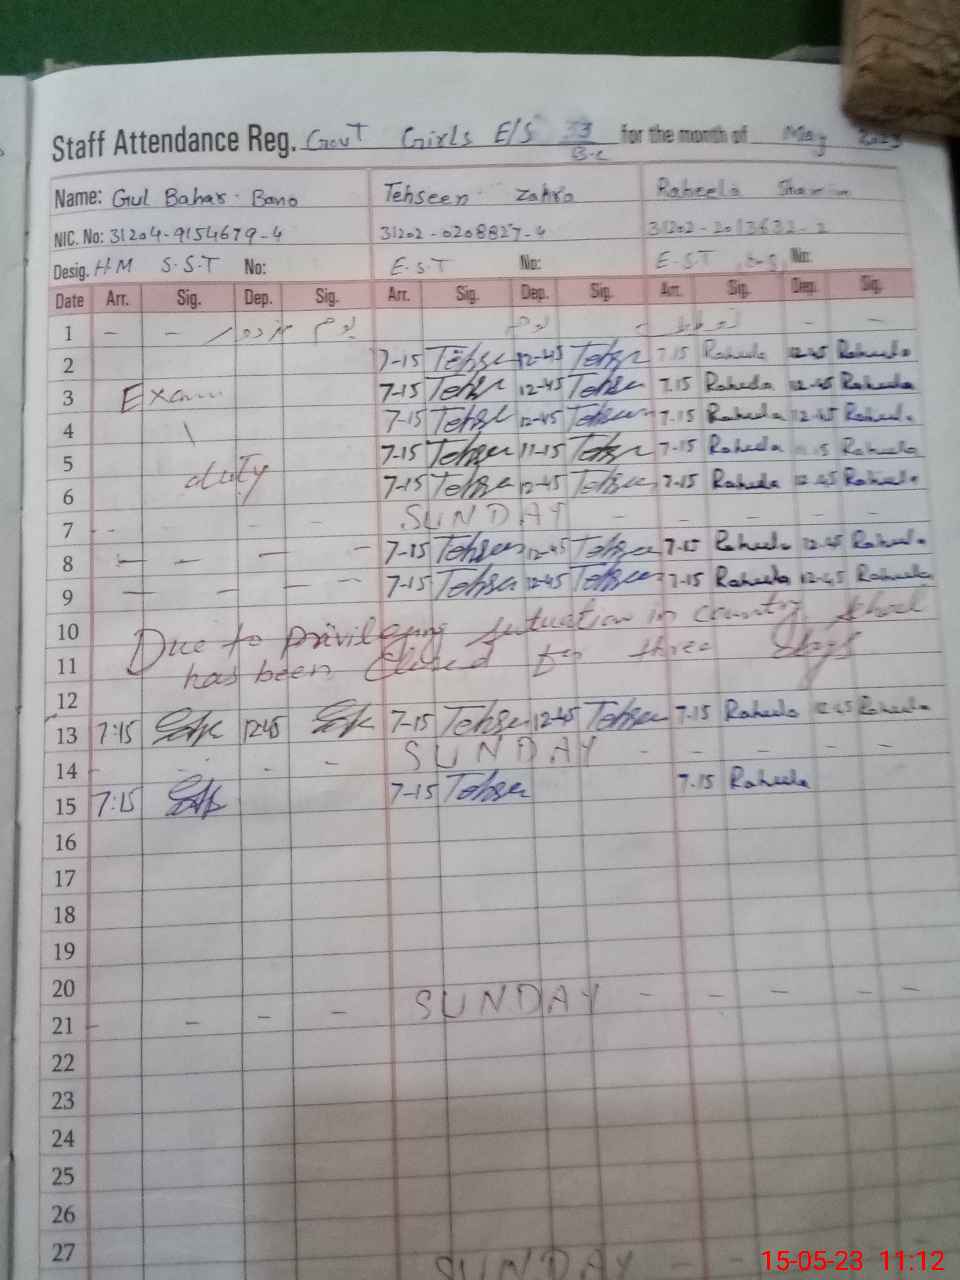 Staff Attendance Reg. Govt Girls E/S 33/B.C for the month of May 2023
Name: Gul Bahar Bano Tehseen Zahra Raheela
NIC. No: 31204-9154679-4 31202-0208827-4 31202-2013632-2
Desig. H M S.S.T No: E.S.T No: E.S.T No:
Date Arr. Sig. Dep. Sig. Arr. Sig. Dep. Sig. Arr. Sig. Dep. Sig.
1 - - یوم مزدور - -
2 7-15 Tehse 12-45 Tehse 7.15 Raheela 12.45 Raheela
3 Exam 7-15 Tehse 12-45 Tehse 7.15 Raheela 12.45 Raheela
4 \ 7-15 Tehse 12-45 Tehseen 7-15 Raheela 12.45 Raheela
5 7-15 Tehseen 11-15 Tehse 7-15 Raheela Raheela
6 duty 7-15 Tehse 12-45 Tehseen 7-15 Raheela 12.45 Raheela
7 - - - - SUNDAY - - - - -
8 - - - - 7-15 Tehseen 12-45 Tehseen 7-15 Raheela 12.45 Raheela
9 - - - - 7-15 Tehseen 12-45 Tehseen 7-15 Raheela 12-45 Raheela
10 Due to privilaging situation in country school
11 has been closed for three days
12
13 7:15 12:45 7-15 Tehseen 12-45 Tehseen 7-15 Raheela 12.45 Raheela
14 - - - - SUNDAY - - - - -
15 7:15 7-15 Tehseen 7.15 Raheela
16
17
18
19
20
21 - - - - SUNDAY - - - - -
22
23
24
25
26
27
SUNDAY - - -
15-05-23 11:12